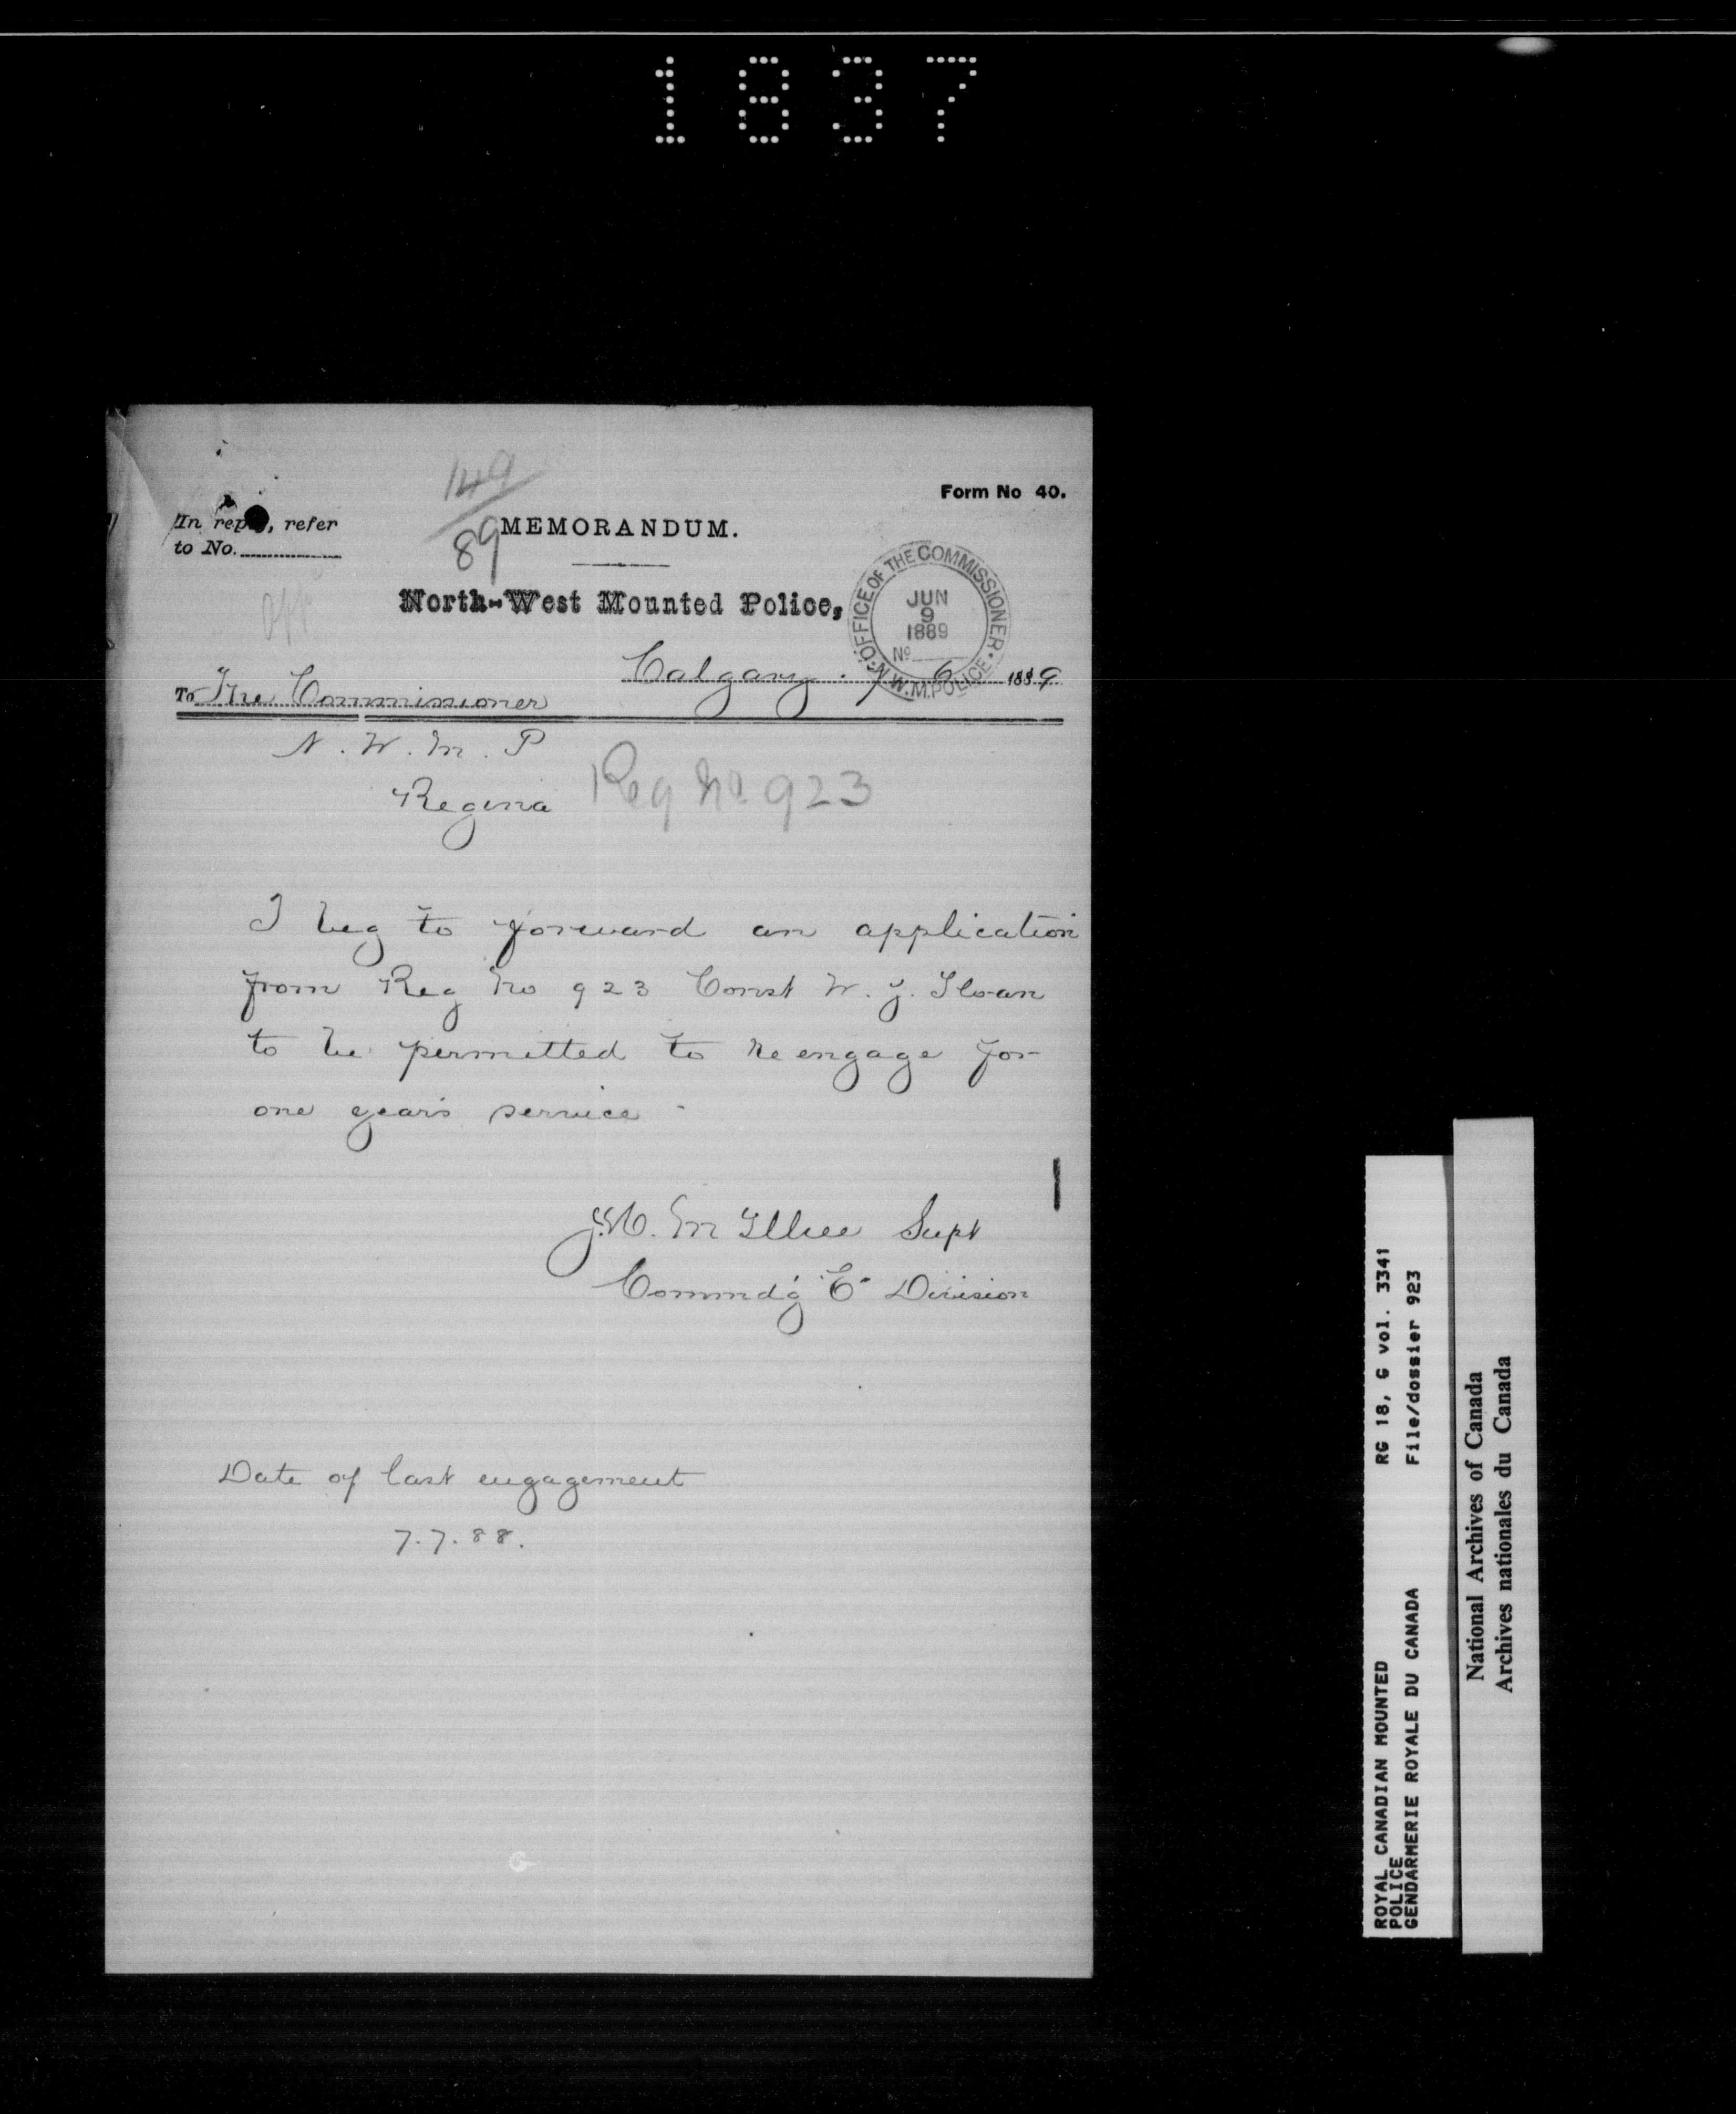 1837
Form No 40.
149
89
In reply, refer
to No.
MEMORANDUM.
App
North-West Mounted Police,
OFFICE OF THE COMMISSIONER
JUN
9
1889
No
N.W.M. POLICE
Calgary. 7/6 1889
To The Commissioner
N. W. M. P
Regina
Reg No 923
I beg to forward an application
from Reg No 923 Const W. J. Sloan
to be permitted to re engage for
one year's service -
J.H. McIllree Supt
Commd'g "E" Division
Date of last engagement
7.7.88.
ROYAL CANADIAN MOUNTED
POLICE
GENDARMERIE ROYALE DU CANADA
RG 18, G vol. 3341
File/dossier 923
National Archives of Canada
Archives nationales du Canada